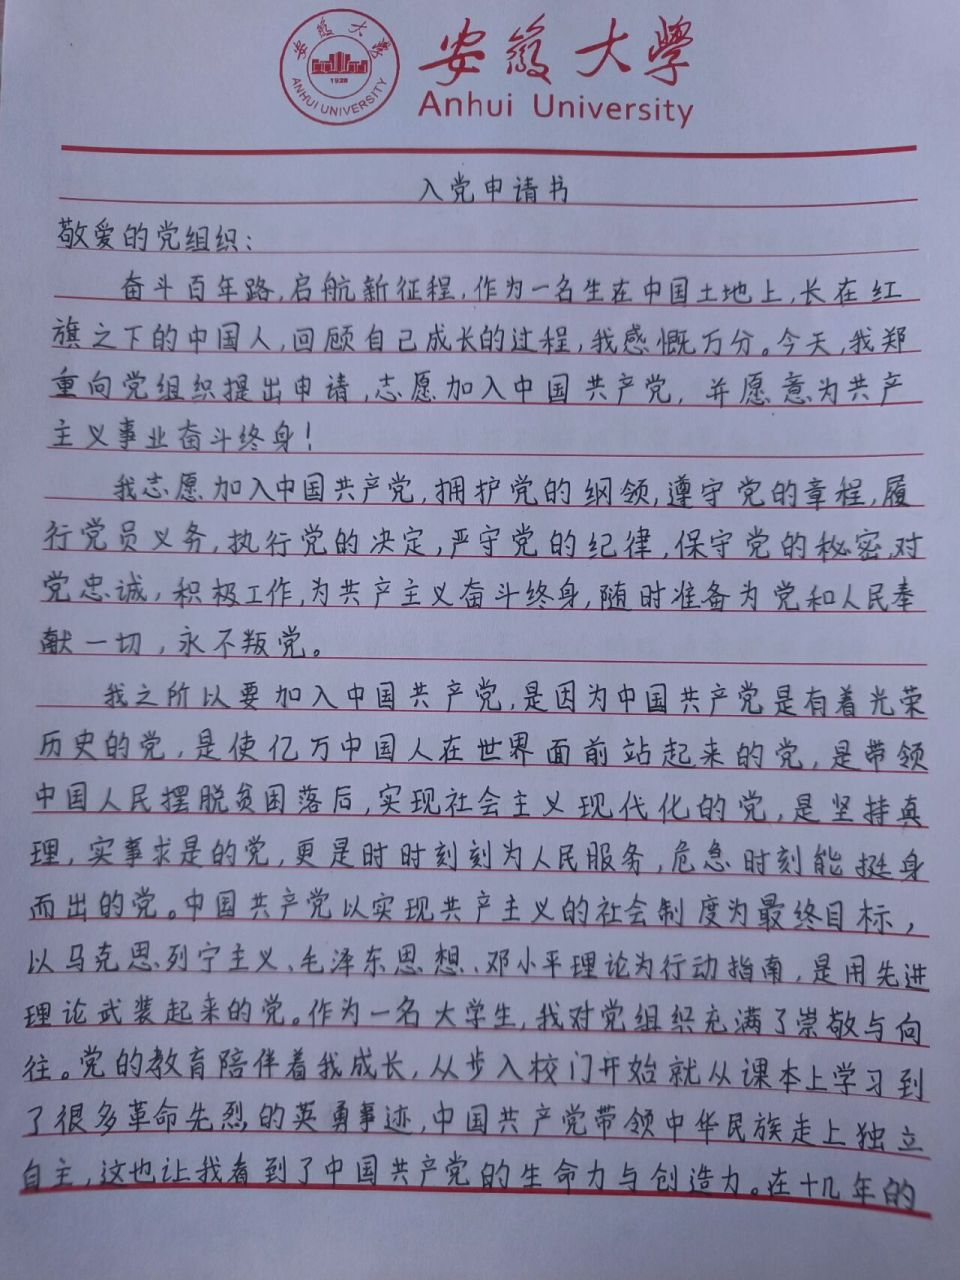 安徽大学
1928
ANHUI UNIVERSITY
安徽大學
Anhui University
入党申请书
敬爱的党组织：
奋斗百年路，启航新征程，作为一名生在中国土地上，长在红
旗之下的中国人，回顾自己成长的过程，我感慨万分。今天，我郑
重向党组织提出申请，志愿加入中国共产党，并愿意为共产
主义事业奋斗终身！
我志愿加入中国共产党，拥护党的纲领，遵守党的章程，履
行党员义务，执行党的决定，严守党的纪律，保守党的秘密，对
党忠诚，积极工作，为共产主义奋斗终身，随时准备为党和人民奉
献一切，永不叛党。
我之所以要加入中国共产党，是因为中国共产党是有着光荣
历史的党，是使亿万中国人在世界面前站起来的党，是带领
中国人民摆脱贫困落后，实现社会主义现代化的党，是坚持真
理，实事求是的党，更是时时刻刻为人民服务，危急时刻能挺身
而出的党。中国共产党以实现共产主义的社会制度为最终目标，
以马克思列宁主义、毛泽东思想、邓小平理论为行动指南，是用先进
理论武装起来的党。作为一名大学生，我对党组织充满了崇敬与向
往。党的教育陪伴着我成长，从步入校门开始就从课本上学习到
了很多革命先烈的英勇事迹，中国共产党带领中华民族走上独立
自主，这也让我看到了中国共产党的生命力与创造力。在十几年的